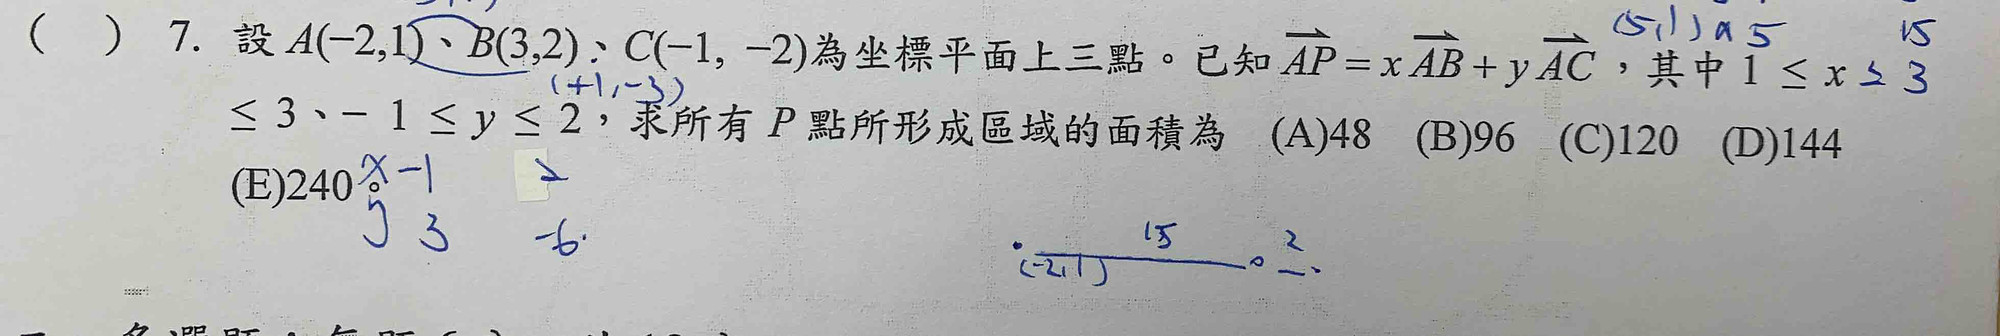 ( ) 7. 設 A(−2,1)、B(3,2)、C(−1, −2)為坐標平面上三點。已知 AP = x AB + y AC，其中 1 ≤ x
≤ 3、− 1 ≤ y ≤ 2，求所有 P 點所形成區域的面積為 (A)48 (B)96 (C)120 (D)144
(E)240。
(5,1) 5 15
3
(+1,-3)
x -1 2
y 3 -6
15 2
(-2,1)